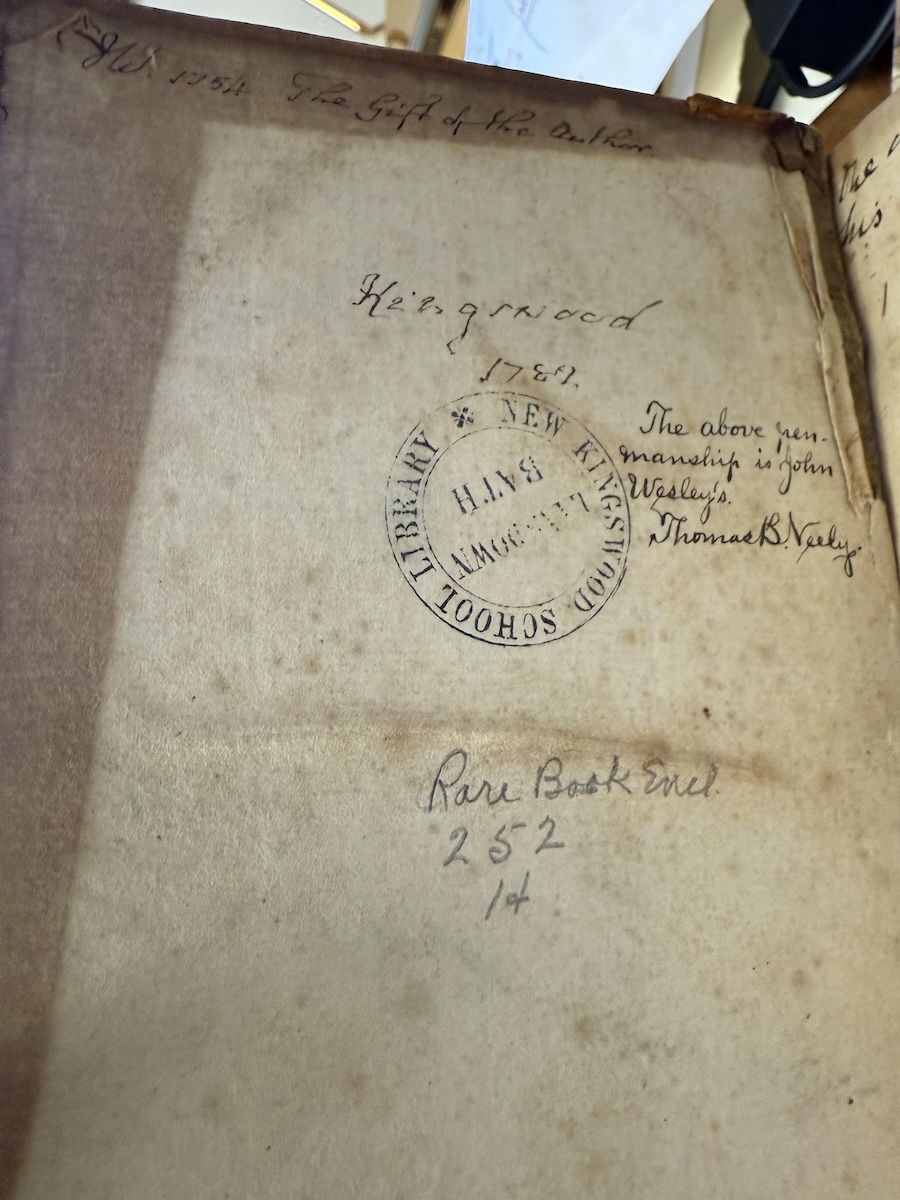 JW. 1754 The Gift of the Author.
Kingswood
1789.
NEW KINGSWOOD SCHOOL LIBRARY
LANSDOWN
BATH
The above pen-
manship is John
Wesley's.
Thomas B. Neely.
Rare Book Encl.
252
14
the
his